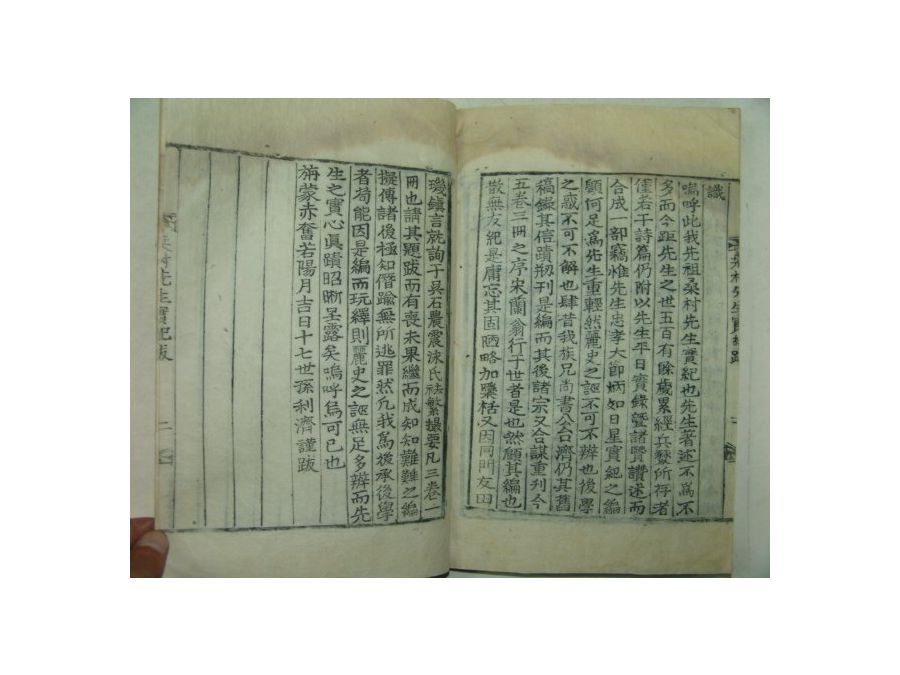 識
嗚呼此我先祖桑村先生實紀也先生著述不爲不
多而今距先生之世五百有餘歲累經兵燹所存者
僅若干詩篇仍附以先生平日實錄曁諸賢讚述而
合成一部竊惟先生忠孝大節炳如日星實紀之編
顧何足爲先生重輕然麗史之誣不可不辨也後學
之惑不可不解也肆昔我族兄尚書公台濟仍其舊
稿錄其信蹟刱刊是編而其後諸宗又合謀重刊今
五卷三冊之序宋蘭翁行于世者是也然顧其編也
散無友紀是庸忘其固陋略加檃栝又因同門友田
璣鎭言就詢于吳石農震泳氏祛繁撮要凡三卷一
冊也請其題跋而有喪未果繼而成知知難難之編
擬傳諸後極知僭踰無所逃罪然凡我爲後承後學
者苟能因是編而玩繹則麗史之誣無足多辨而先
生之實心眞蹟昭晣呈露矣嗚呼烏可已也
旃蒙赤奮若陽月吉日十七世孫利濟謹跋
桑村先生實紀跋
二